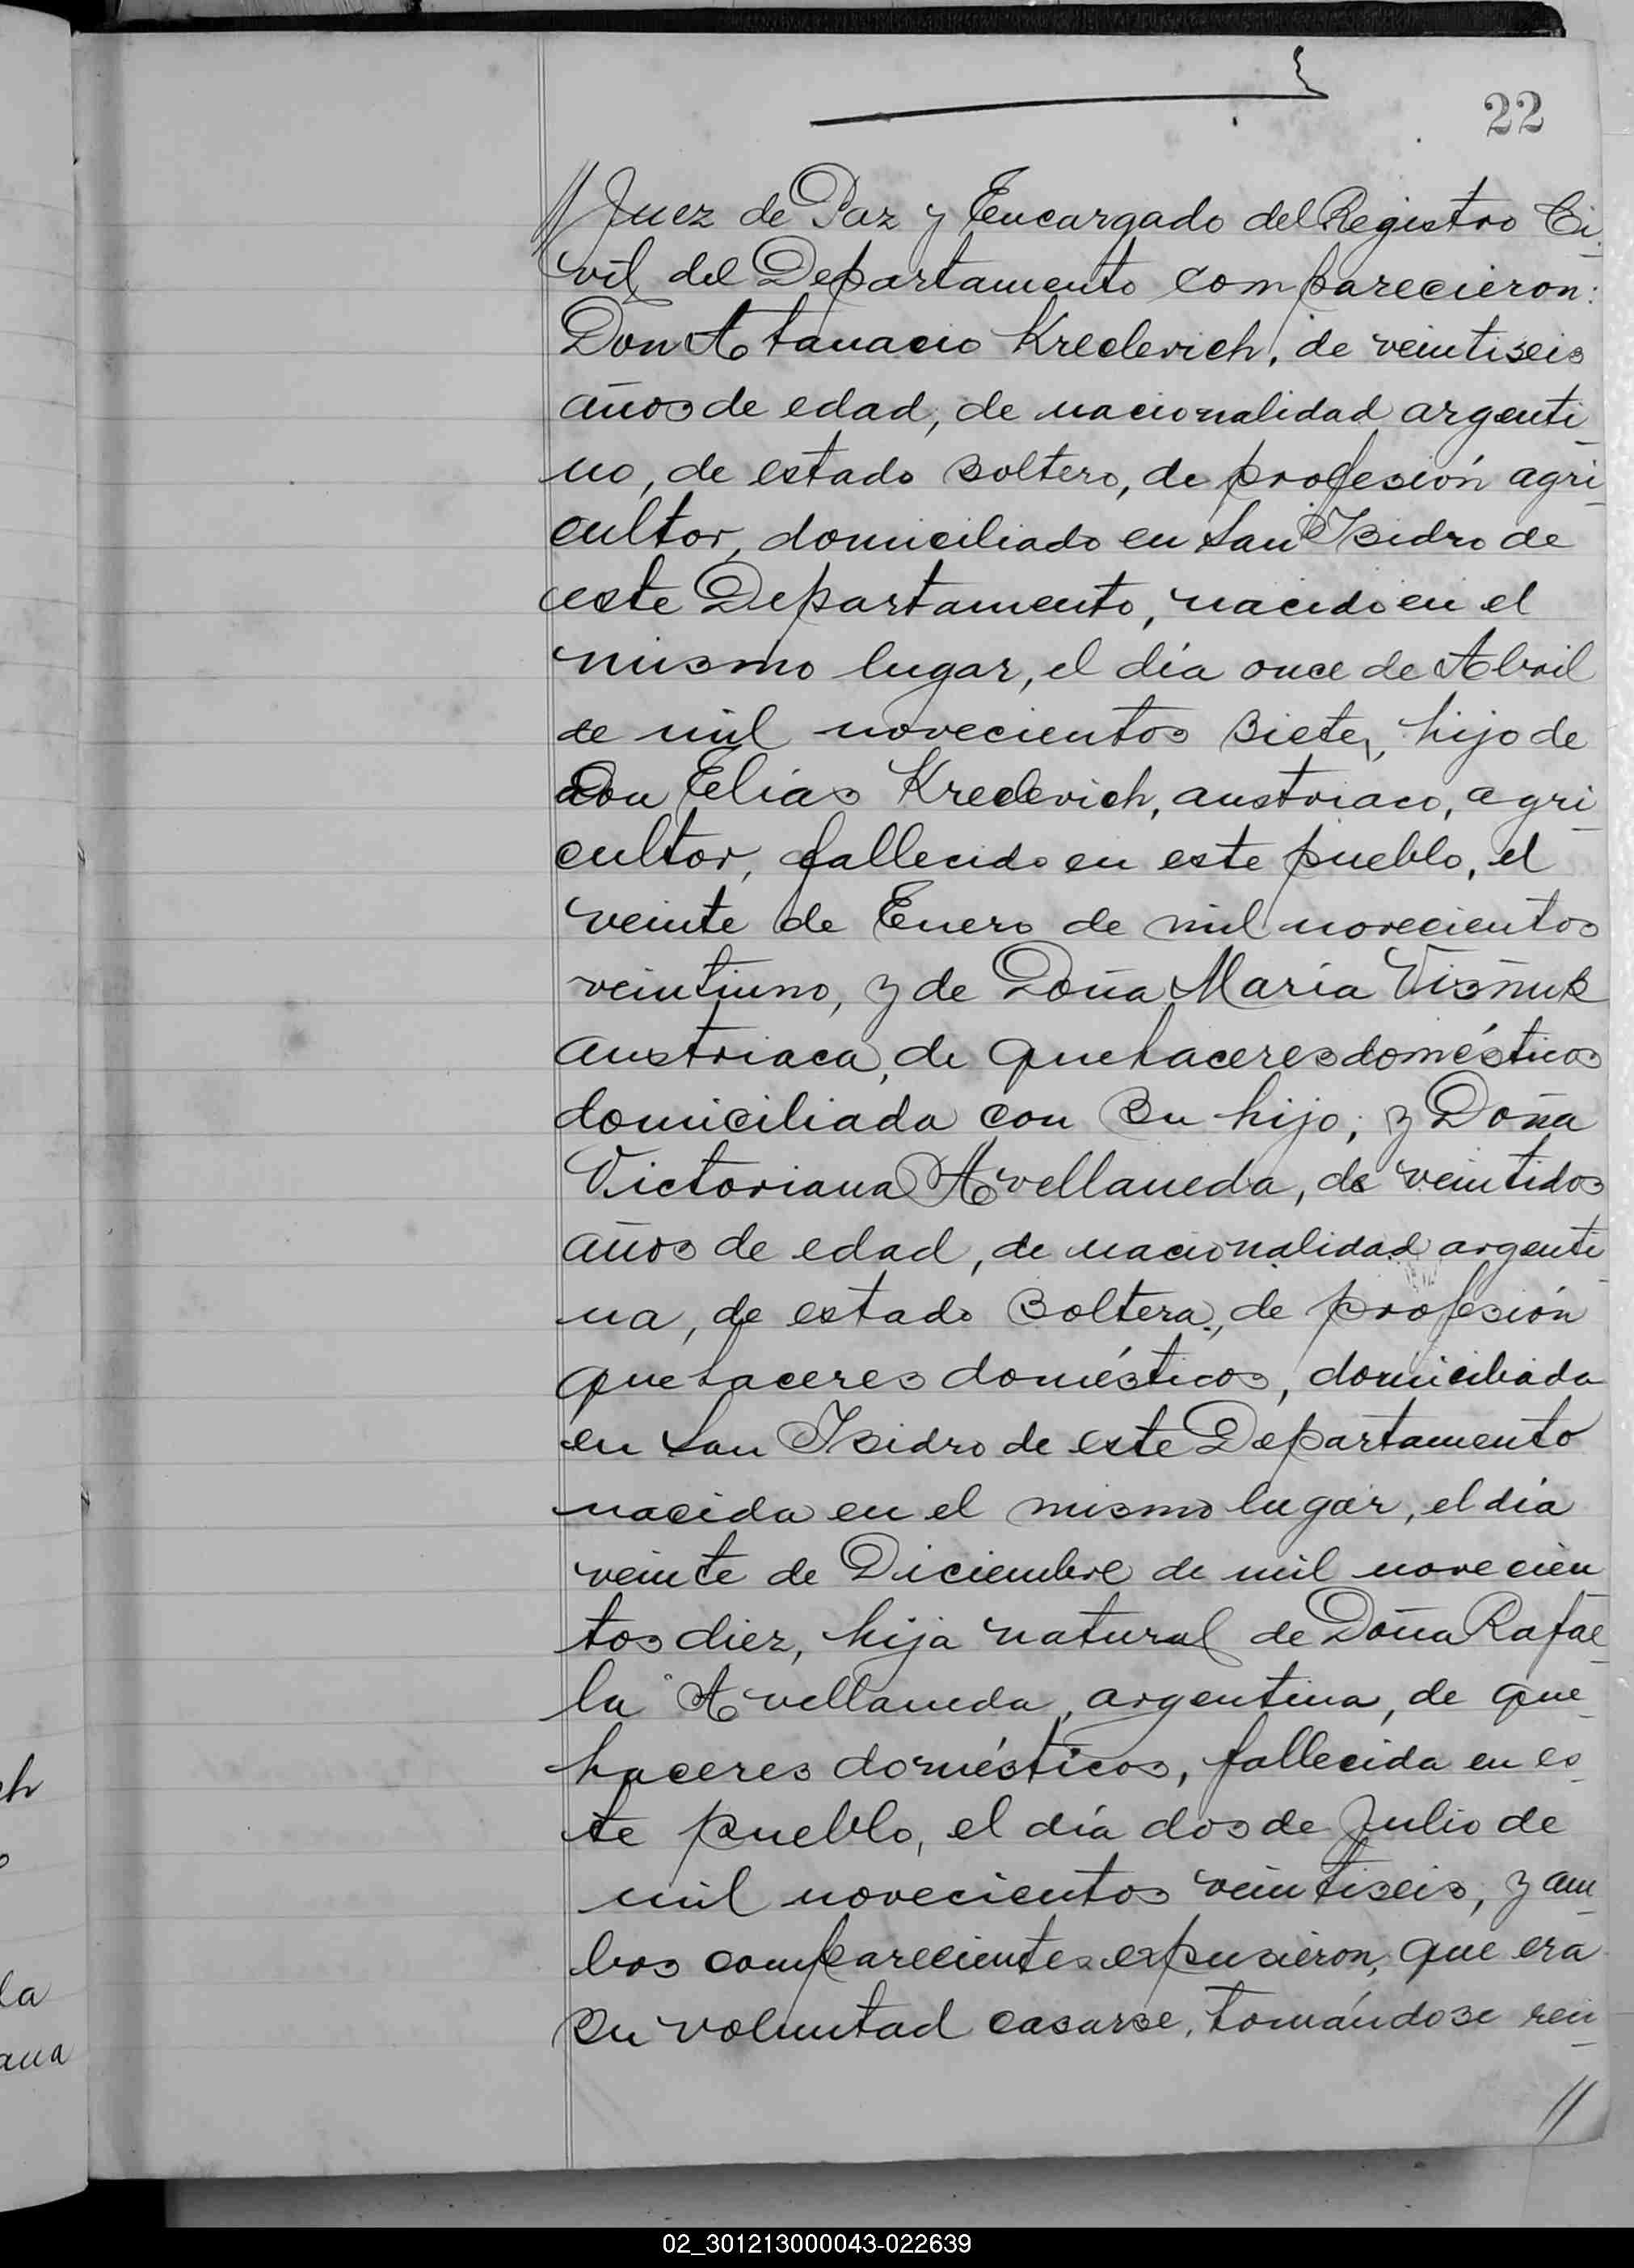 22
// Juez de Paz y Encargado del Registro Ci-
vil del Departamento comparecieron:
Don Atanacio Krecle­vich, de veintiseis
años de edad, de nacionalidad argenti-
no, de estado soltero, de profesión agri-
cultor, domiciliado en San Isidro de
este Departamento, nacido en el
mismo lugar, el día once de Abril
de mil novecientos siete, hijo de
don Elías Kreclevich, austriaco, agri-
cultor, fallecido en este pueblo, el
veinte de Enero de mil novecientos
veintiuno, y de Doña María Visñuk
austriaca, de quehaceres domésticos
domiciliada con su hijo; y Doña
Victoriana Avellaneda, de veintidos
años de edad, de nacionalidad argenti-
na, de estado soltera, de profesión
quehaceres domésticos, domiciliada
en San Isidro de este Departamento
nacida en el mismo lugar, el día
veinte de Diciembre de mil novecien-
tos diez, hija natural de Doña Rafae-
la Avellaneda, argentina, de que-
haceres domésticos, fallecida en es-
te pueblo, el día dos de Julio de
mil novecientos veintiseis, y am-
bos comparecientes expusieron, que era
su voluntad casarse, tomándose ren-
//
ch
o
la
ana
02_301213000043-022639